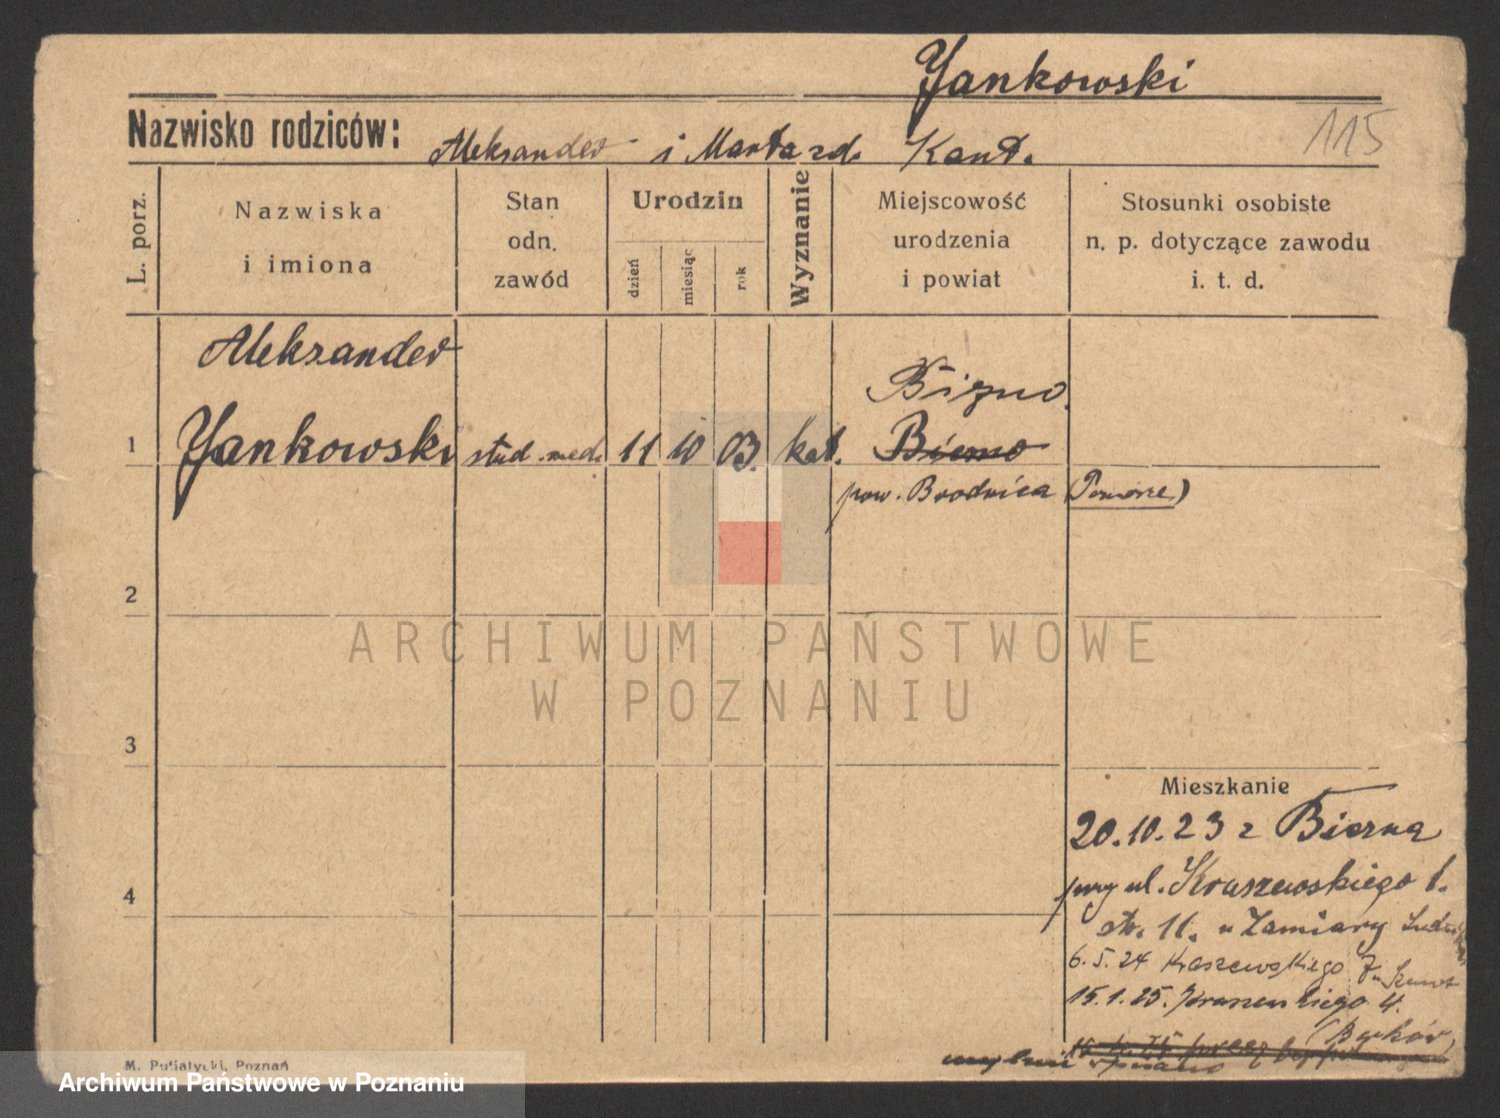 Yankowski
Nazwisko rodziców: Aleksander i Marta zd. Kant. 115
L. porz.
Nazwiska
i imiona
Stan
odn.
zawód
Urodzin
dzień
miesiąc
rok
Wyznanie
Miejscowość
urodzenia
i powiat
Stosunki osobiste
n. p. dotyczące zawodu
i. t. d.
Aleksander
1 Yankowski stud. med. 11 10 03. kat.
Bizno
pow. Brodnica (Pomorze)
2
3
4
Mieszkanie
20.10.23 z
przy ul. Kraszewskiego 1.
11. u
6.5.24 Kraszewskiego
15.1.25. Kraszewskiego 4.
mylnie wpisano
M. Puśiatycki, Poznań
ARCHIWUM PAŃSTWOWE
W POZNANIU
Archiwum Państwowe w Poznaniu